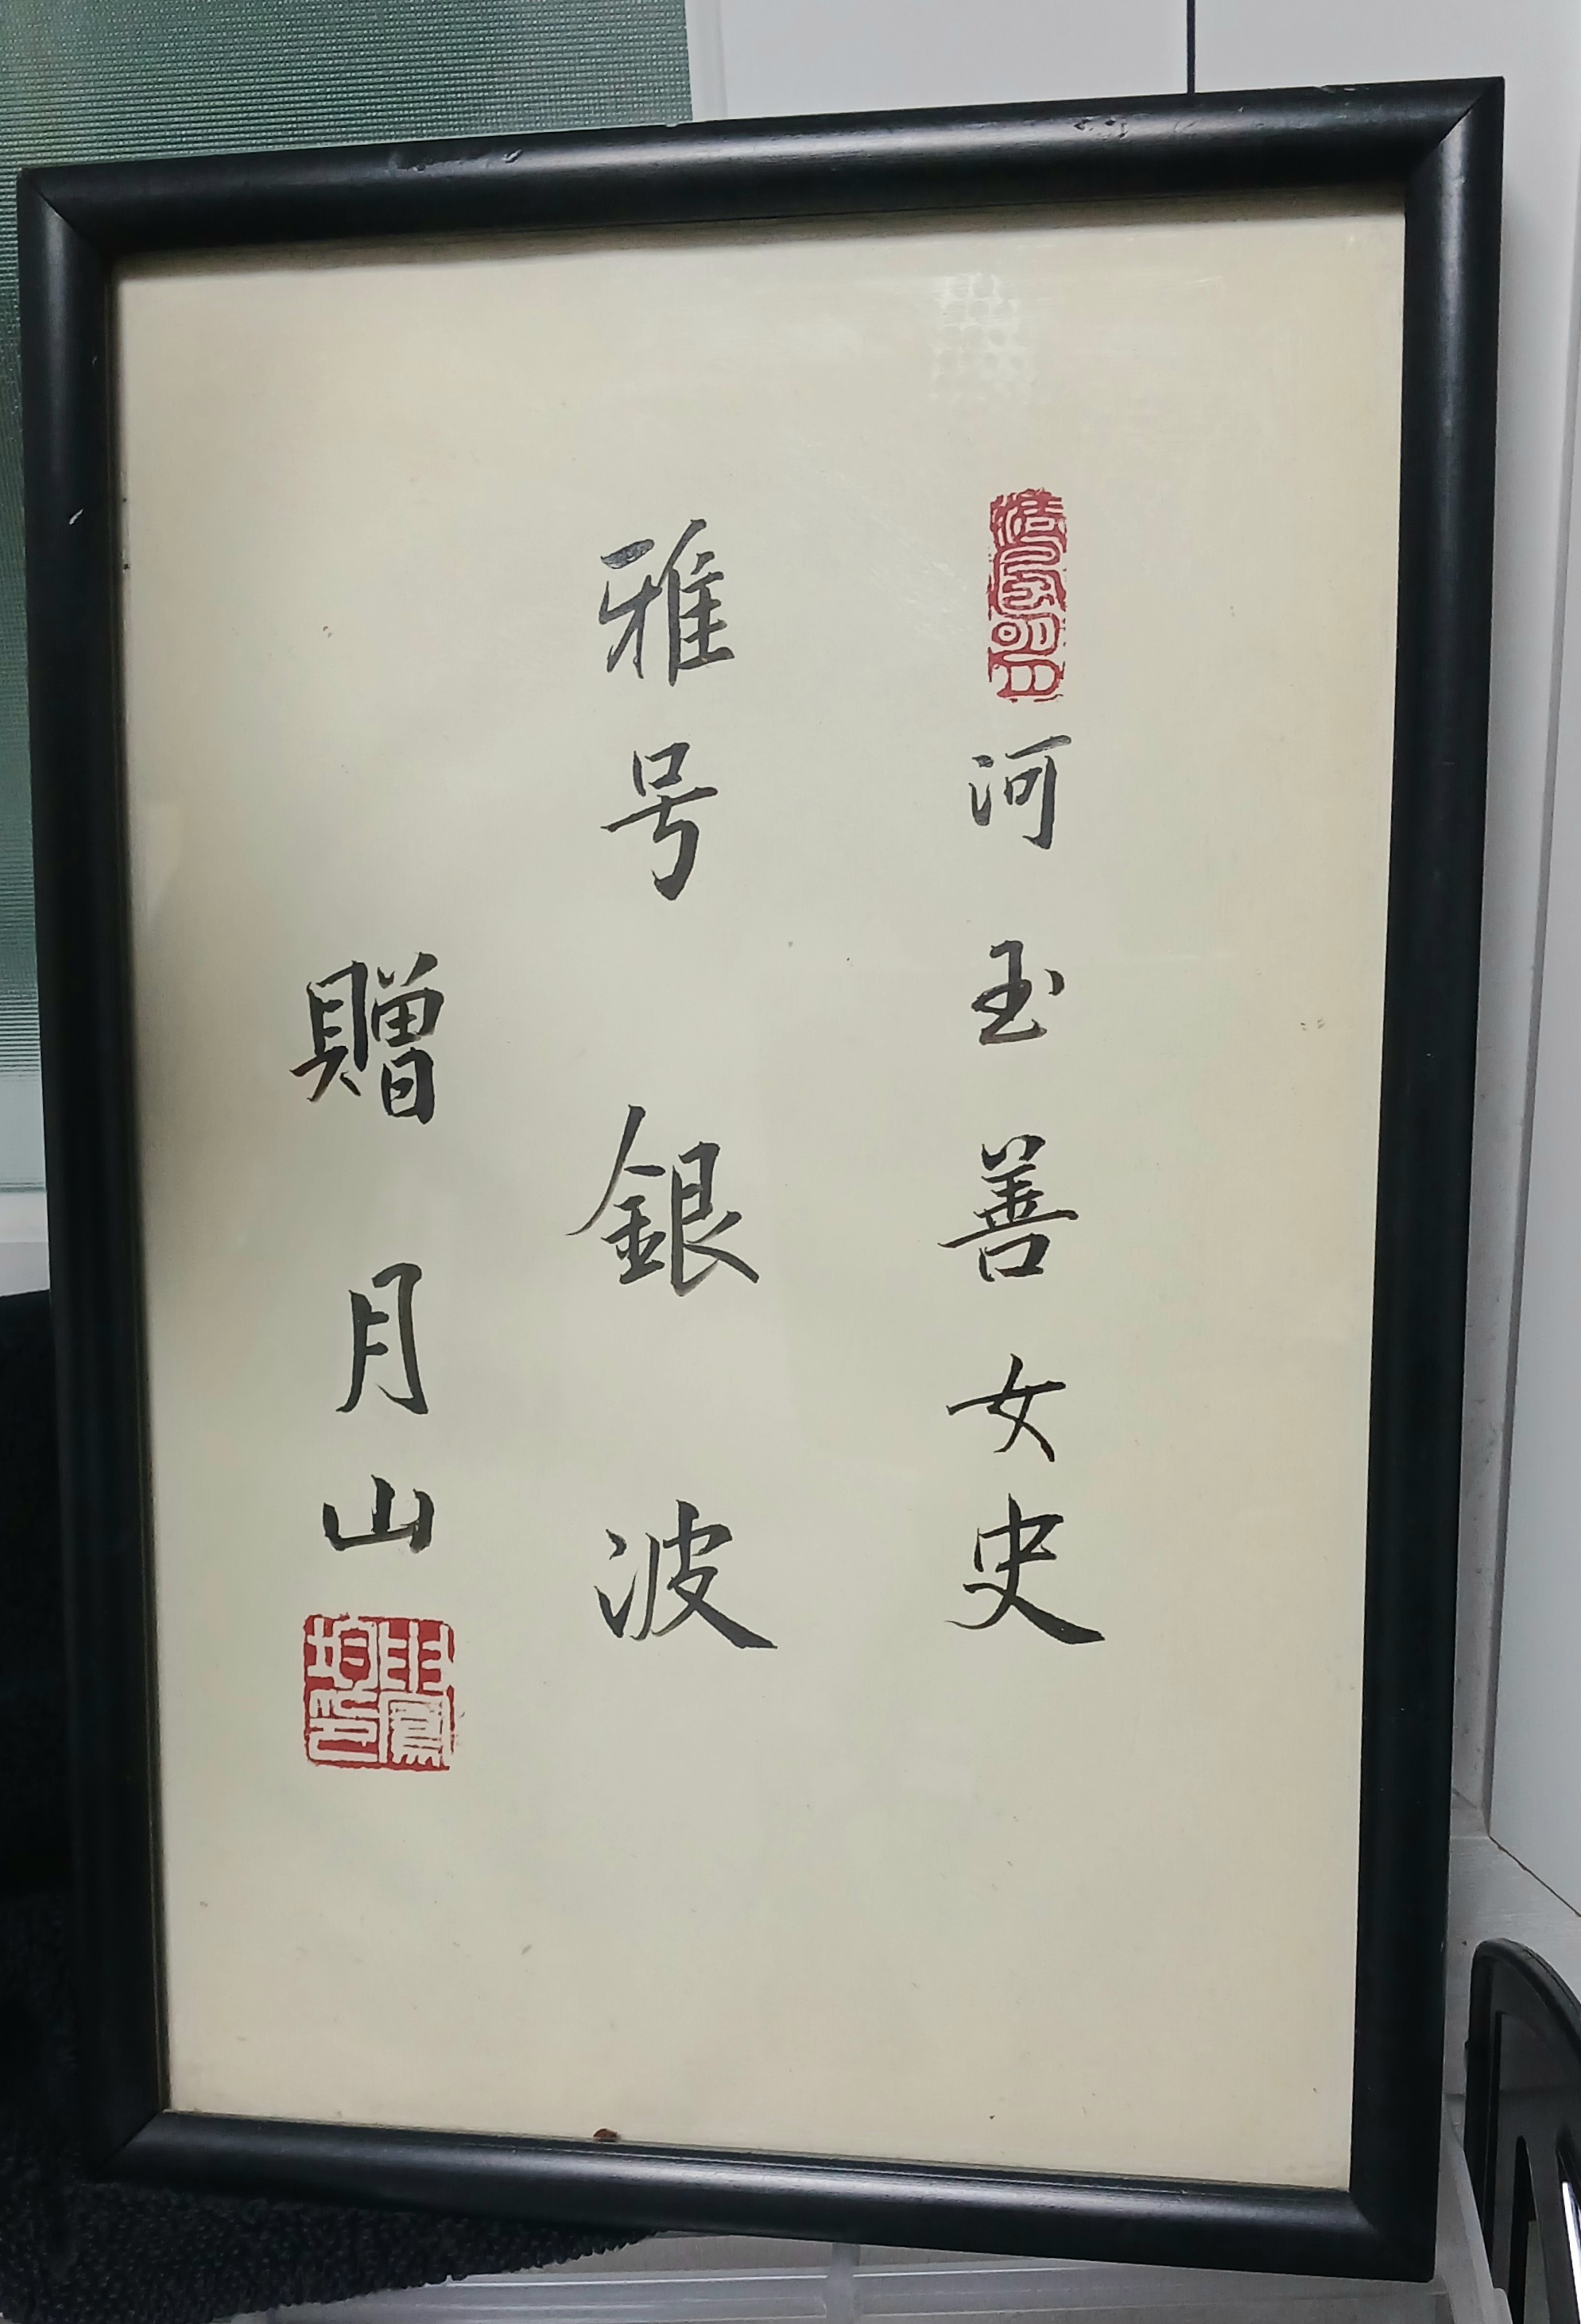 河玉善女史
雅号 銀波
贈 月山